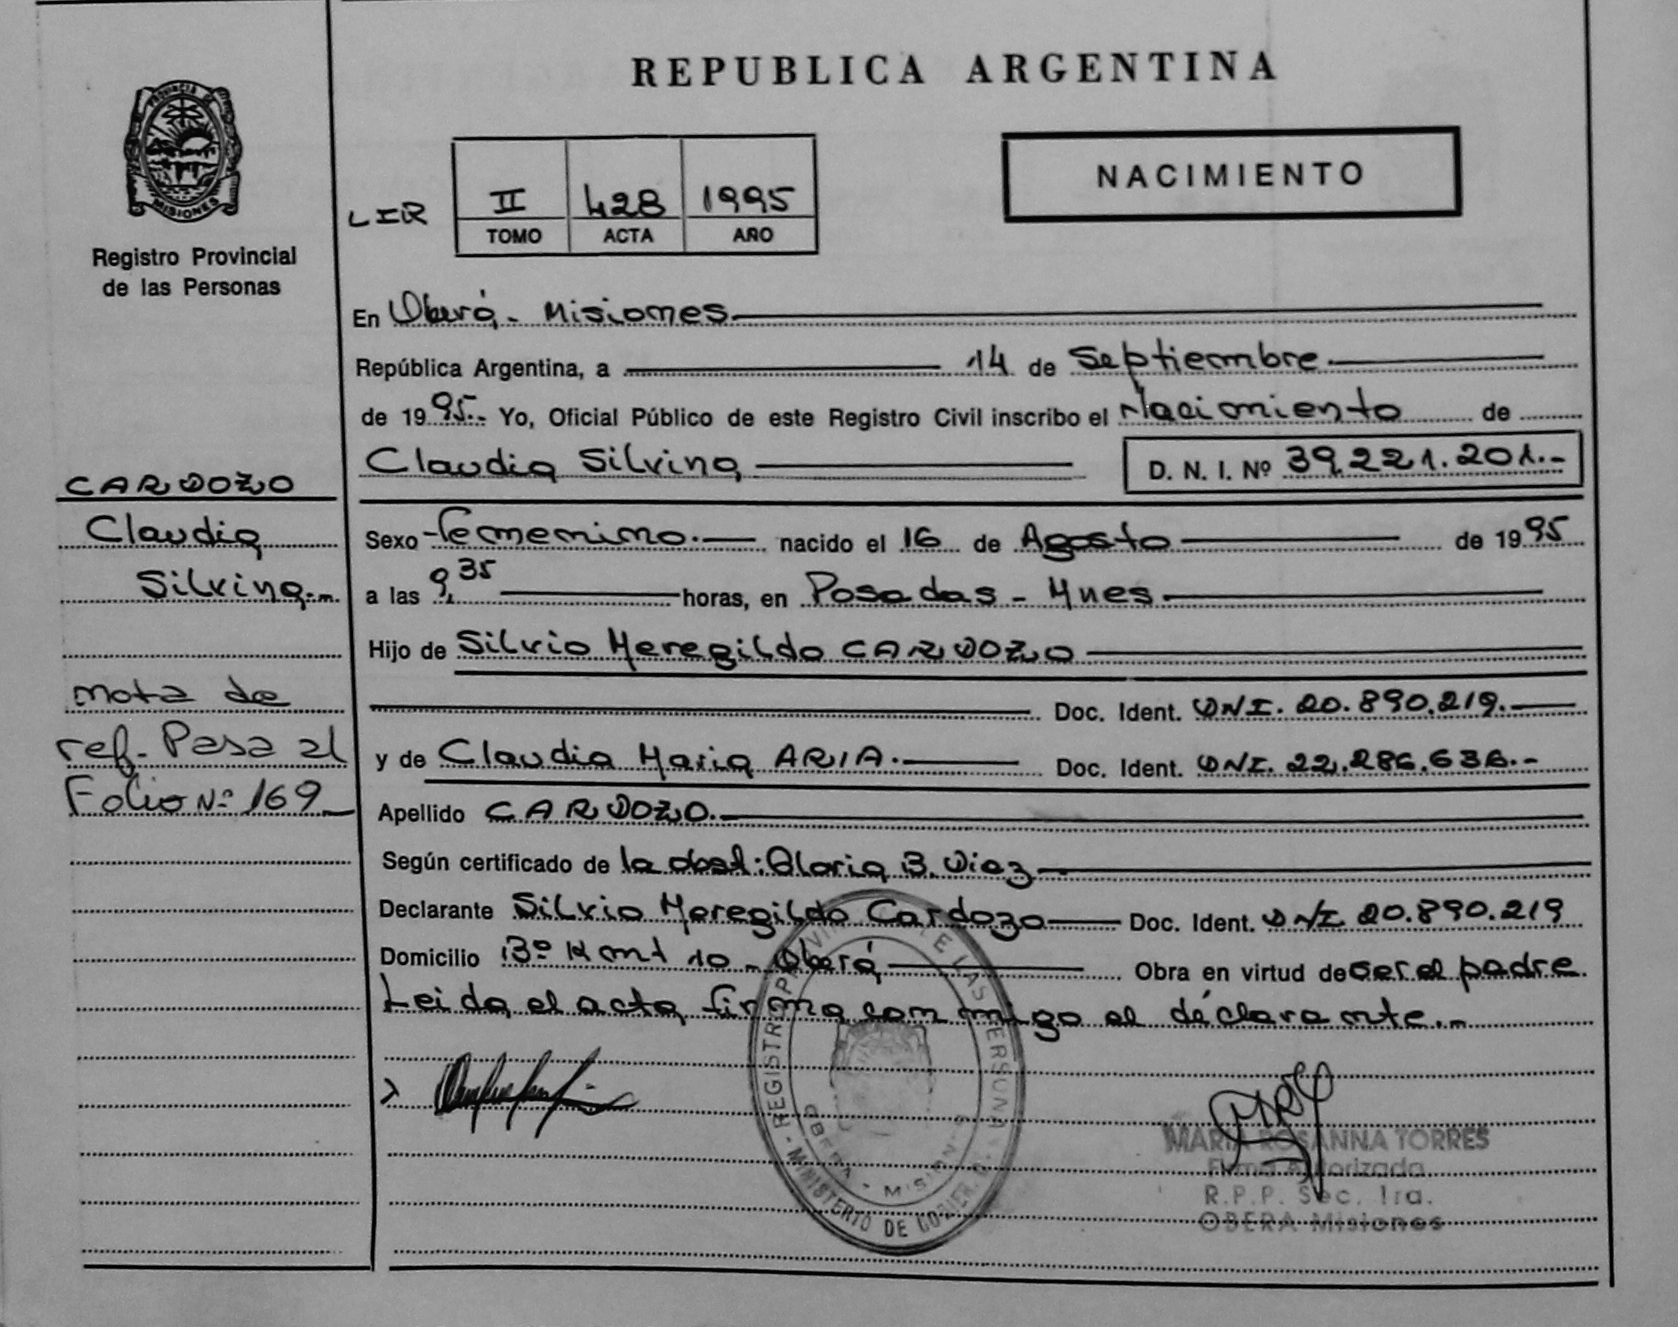 REPUBLICA ARGENTINA
PROVINCIA DE
MISIONES
Registro Provincial
de las Personas
NACIMIENTO
LIR
II 428 1995
TOMO ACTA AÑO
En Oberá - Misiones
República Argentina, a 14 de Septiembre
de 1995.- Yo, Oficial Público de este Registro Civil inscribo el Nacimiento de
Claudia Silvina D. N. I. Nº 39.221.201.-
CARDOZO
Claudia
Silvina.-
Sexo femenino. nacido el 16 de Agosto de 1995
a las 9,35 horas, en Posadas - Mnes
Hijo de Silvio Meregildo CARDOZO
Doc. Ident. DNI. 20.890.219.
y de Claudia Maria ARIA. Doc. Ident. DNI. 22.286.636.-
nota de
ref. Pasa al
Folio Nº 169
Apellido CARDOZO.
Según certificado de la obst: Gloria B. Diez
Declarante Silvio Meregildo Cardozo Doc. Ident. DNI. 20.890.219
Domicilio Bº 10 - Oberá Obra en virtud de ser el padre
Leida el acta firma conmigo el declarante.-
REGISTRO PROVINCIAL DE LAS PERSONAS
MINISTERIO DE GOBIERNO
OBERA - MISIONES
MARIA ROSANNA TORRES
Firma Autorizada
R.P.P. Sec. 1ra.
OBERA Misiones